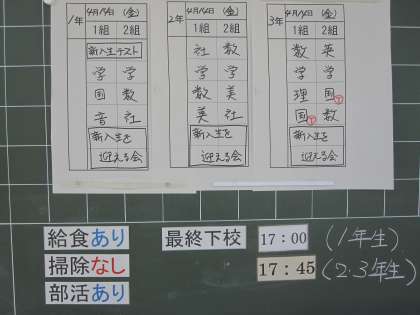 1年 4月14日(金)
1組 2組
新入生テスト
学 学
国 数
音 社
新入生を
迎える会
2年 4月14日(金)
1組 2組
社 数
学 学
数 美
美 社
新入生を
迎える会
3年 4月14日(金)
1組 2組
数 英
学 学
理 国
国 数
新入生を
迎える会
給食あり 最終下校 17:00 (1年生)
掃除なし 17:45 (2.3年生)
部活あり